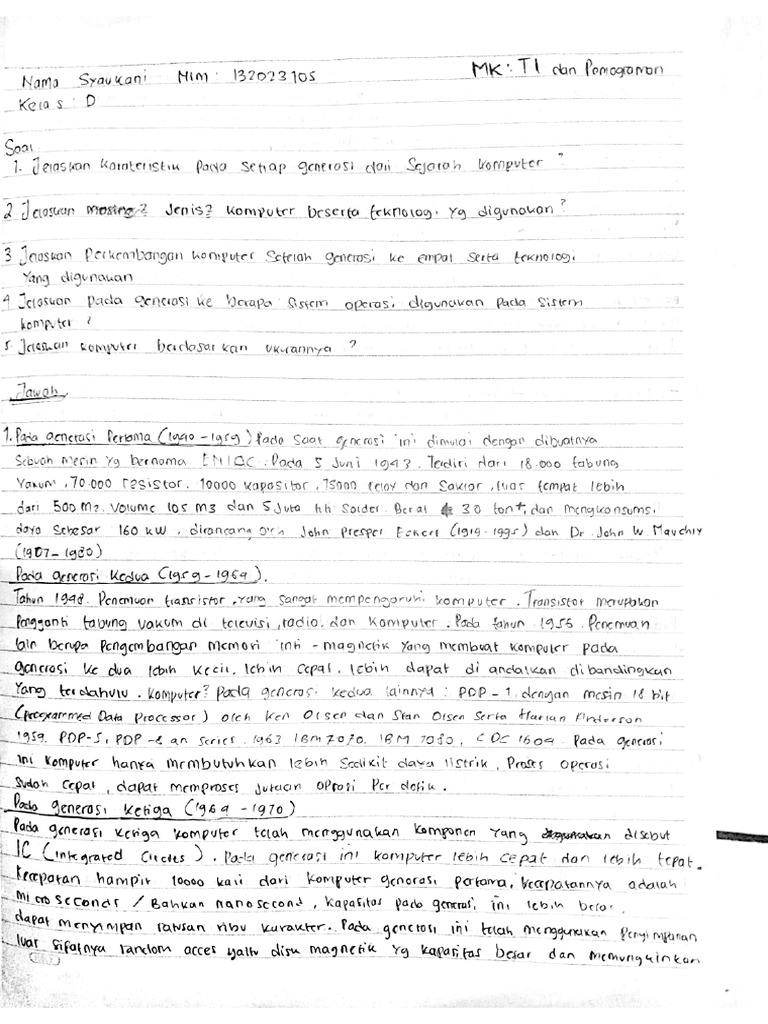 Nama Syaukani NIM: 132023105 MK: TI dan Pemograman
Kelas : D
Soal
1. Jelaskan karateristik pada setiap generasi dari Sejarah komputer ?
2 Jelaskan masing2 Jenis2 komputer beserta teknologi yg digunakan ?
3 Jelaskan Perkembangan komputer Setelah generasi ke empat serta teknologi
yang digunakan
4 Jelaskan pada generasi ke berapa sistem operasi digunakan pada sistem
komputer ?
5. Jelaskan komputer berdasarkan ukurannya ?
Jawab
1. Pada generasi Pertama (1940 - 1959) Pada Saat generasi ini dimulai dengan dibuatnya
Sebuah mesin yg bernama ENIAC. Pada 5 Juni 1943. Terdiri dari 18.000 tabung
Vakum, 70.000 resistor. 10000 kapasitor, 75000 relay dan Saklar, luas tempat lebih
dari 500 m2. Volume 105 m3 dan 5 Juta ttk Solder. Berat 30 ton, dan mengkonsumsi
daya Sebesar 160 kW, dirancang oleh John Presper Eckert (1919-1995) dan Dr. John W. Mauchly
(1907-1980)
Pada generasi Kedua (1959-1964).
Tahun 1948. Penemuan transistor, yang sangat mempengaruhi komputer. Transistor merupakan
Pengganti tabung vakum di televisi, radio, dan komputer. Pada tahun 1955. Penemuan
lain berupa pengembangan memori inti - magnetik yang membuat komputer pada
generasi ke dua lebih kecil, lebih cepat, lebih dapat di andalkan dibandingkan
Yang terdahulu. Komputer2 Pada generasi kedua lainnya : PDP-1, dengan mesin 18 bit
(Programmed Data Processor) oleh Ken Olsen dan Stan Olsen Serta Harlan Anderson
1959. PDP-5, PDP-8 an series. 1963 IBM 7070. IBM 7080, CDC 1604. Pada generasi
ini komputer hanya membutuhkan lebih Sedikit daya listrik, Proses operasi
sudah cepat, dapat memproses Jutaan oprasi Per detik.
Pada generasi ketiga (1964 - 1970)
Pada generasi ketiga komputer telah menggunakan komponen yang disebut
IC (Integrated Circles). Pada generasi ini komputer lebih cepat dan lebih tepat.
kecepatan hampir 10000 kali dari komputer generasi pertama, kecepatannya adalah
microseconds / Bahkan nanosecond, kapasitas pada generasi ini lebih besar.
dapat menyimpan ratusan ribu karakter. Pada generasi ini telah menggunakan Penyimpanan
luar sifatnya random acces yaitu disk magnetik yg kapasitas besar dan memungkinkan